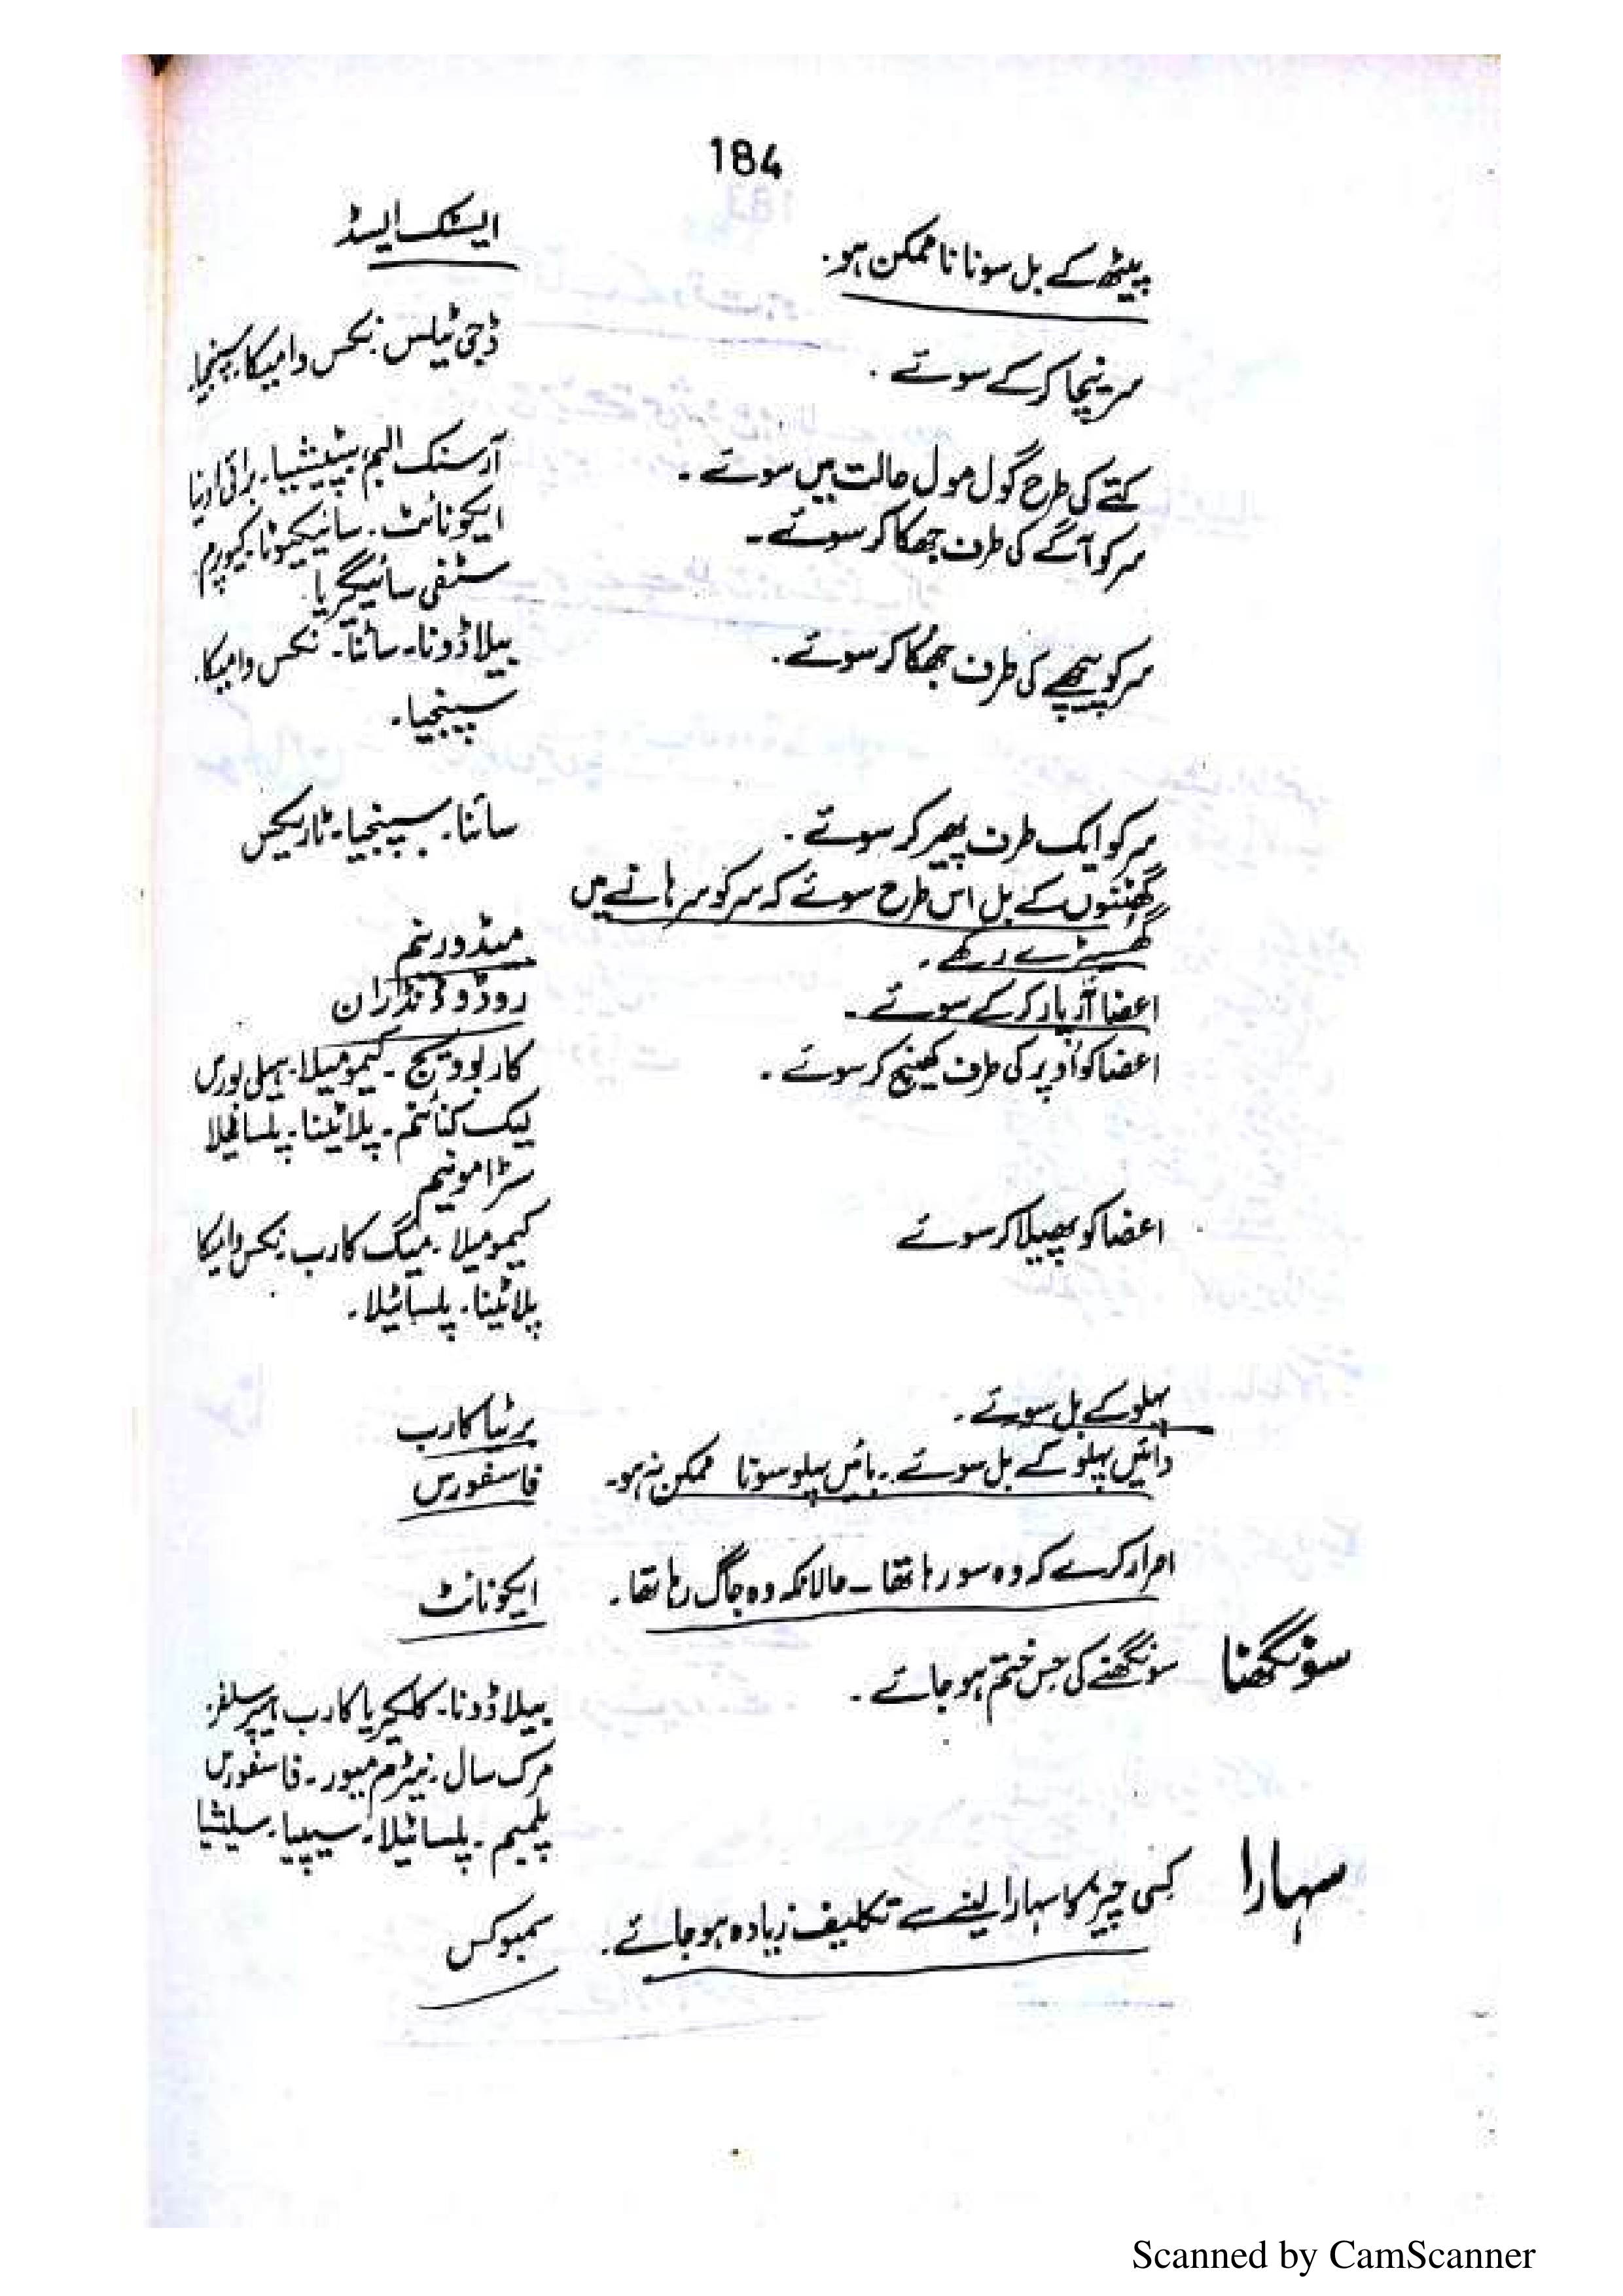 184
پیٹھ کے بل سونا ناممکن ہو۔ ایسٹک ایسڈ
سر نیچا کرکے سوئے ۔ ڈجی ٹیلس۔ نکس وامیکا۔ سپنجیا۔
کتے کی طرح گول مول حالت میں سوئے ۔ آرسنک البم، بپٹیشیا۔ برائی اونیا
سر کو آگے کی طرف جھکا کر سوئے ۔ ایکونائٹ۔ سائیکیوٹا۔ کیوپرم
سٹفی سائیگریا۔
سر کو پیچھے کی طرف جھکا کر سوئے ۔ بیلاڈونا۔ سائنا۔ نکس وامیکا۔
سپنجیا۔
سر کو ایک طرف پھیر کر سوئے ۔ سائنا۔ سپنجیا۔ ٹاریکس
گھٹنوں کے بل اس طرح سوئے کہ سر کو سرہانے میں
گھسیڑے رکھے ۔ میڈورینم
اعضا آڑ پار کر کے سوئے ۔ روڈوڈنڈران
اعضا کو اُوپر کی طرف کھینچ کر سوئے ۔ کاربوویج ۔ کیمومیلا۔ ہیلی بورس
لیک کنائنم۔ پلاٹینا۔ پلساٹیلا
سٹرامونیم
اعضا کو پھیلا کر سوئے کیمومیلا۔ میگ کارب۔ نکس وامیکا
پلاٹینا۔ پلساٹیلا۔
پہلو کے بل سوئے ۔ برٹیا کارب
دائیں پہلو کے بل سوئے ۔ بائیں پہلو سونا ممکن نہ ہو۔ فاسفورس
اصرار کرے کہ وہ سو رہا تھا ۔ حالانکہ وہ جاگ رہا تھا ۔ ایکونائٹ
سونگھنا سونگھنے کی حِس ختم ہو جائے ۔ بیلاڈونا۔ کلکیریا کارب ہیپر سلفر
مرک سال۔ نیٹرم میور۔ فاسفورس
پلمبم ۔ پلساٹیلا۔ سیپیا۔ سلیشیا
سہارا کسی چیز کا سہارا لینے سے تکلیف زیادہ ہو جائے ۔ سمبوکس
Scanned by CamScanner